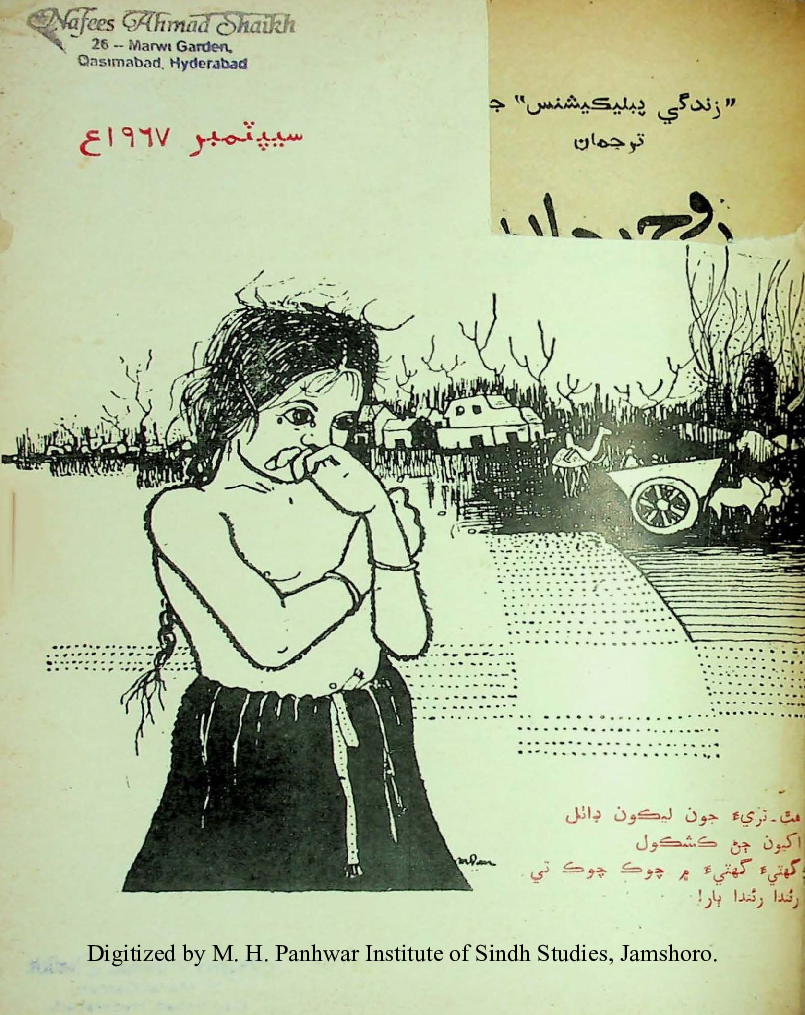 Nafees Ahmad Shaikh
26 -- Marwi Garden,
Qasimabad, Hyderabad
”زندگي پبليڪيشنس“ جو
ترجمان
سيپٽمبر ١٩٦٧ع
هٿ۔تريءَ جون ليڪون ڊاٺل
اکيون ڄڻ ڪشڪول
گهٽيءَ گهٽيءَ ۾ چوڪ چوڪ تي
رئندا رئندا ٻار!
Digitized by M. H. Panhwar Institute of Sindh Studies, Jamshoro.